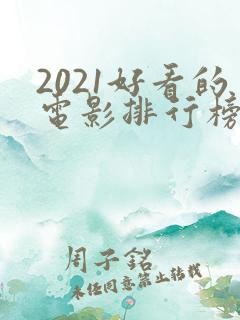 2021好看的
电影排行榜
周子銘
未经同意禁止转载